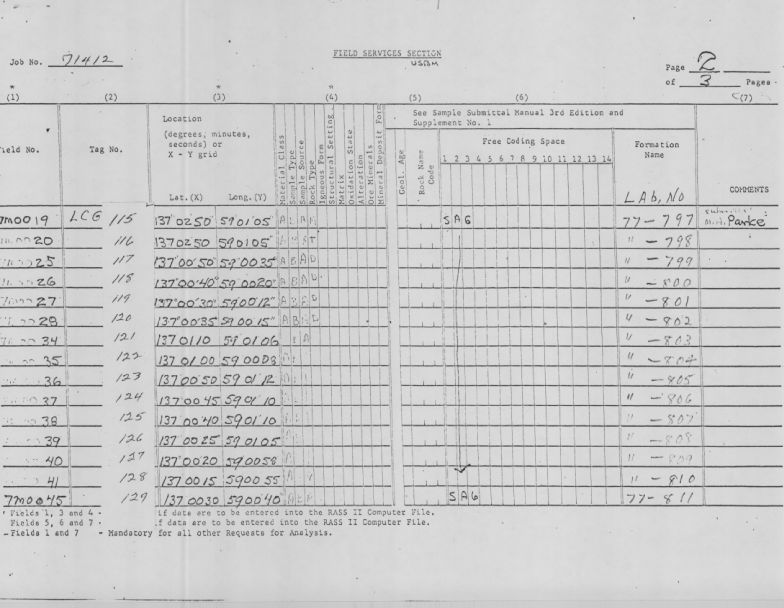 FIELD SERVICES SECTION
USBM
Job No. 71412
Page 2
of 3 Pages
(1) (2) (3) (4) (5) (6) (7)
See Sample Submittal Manual 3rd Edition and
Supplement No. 1
Location
(degrees, minutes,
seconds) or
X - Y grid
Field No. Tag No.
Lat.(X) Long.(Y)
Material Class
Sample Type
Sample Source
Rock Type
Igneous Form
Structural Setting
Matrix
Oxidation State
Alteration
Ore Minerals
Mineral Deposit Form
Geol. Age
Rock Name
Code
Free Coding Space
1 2 3 4 5 6 7 8 9 10 11 12 13 14
Formation
Name
LAb, NO
COMMENTS
7M0019 LCG 115 137°02'50" 59 01'05" SAG 77-797 Parke
20 116 1370250 590105" " -798
25 117 137°00'50" 59°00'35" A B A D " -799
26 118 137°00'40" 59 00 20" A B A D " -800
27 119 137°00'30" 59°00'12" " -801
28 120 137°00'35" 59 00 15" " -802
34 121 1370110 590106 " -803
35 122 137 01 00 59 00 08 " -804
36 123 137 00 50 59 01 12 " -805
37 124 137 00 45 59 01 10 " -806
38 125 137 00 40 59 01 10 " -807
39 126 137 00 25 59 01 05 " -808
40 127 137 00 20 59 00 58 " -809
41 128 137 00 15 59 00 55 " -810
7M0045 129 137 00 30 59 00 40 SAG 77-811
Fields 1, 3 and 4 - if data are to be entered into the RASS II Computer File.
Fields 5, 6 and 7 - if data are to be entered into the RASS II Computer File.
-Fields 1 and 7 - Mandatory for all other Requests for Analysis.